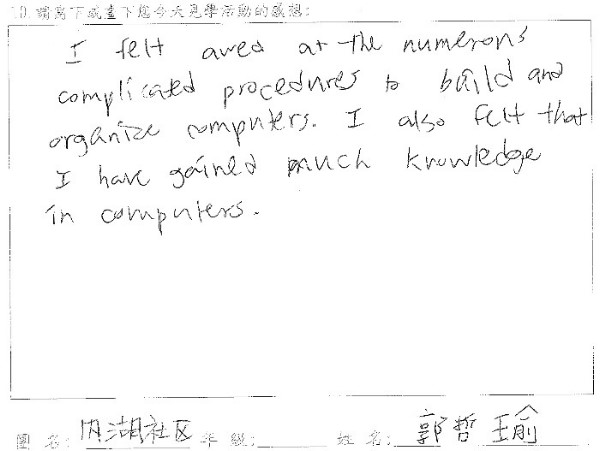 10.請寫下或畫下您今天見學活動的感想:
I felt awed at the numerous
complicated procedures to build and
organize computers. I also felt that
I have gained much knowledge
in computers.
團 名: 內湖社区 年 級: 姓 名: 郭哲瑜